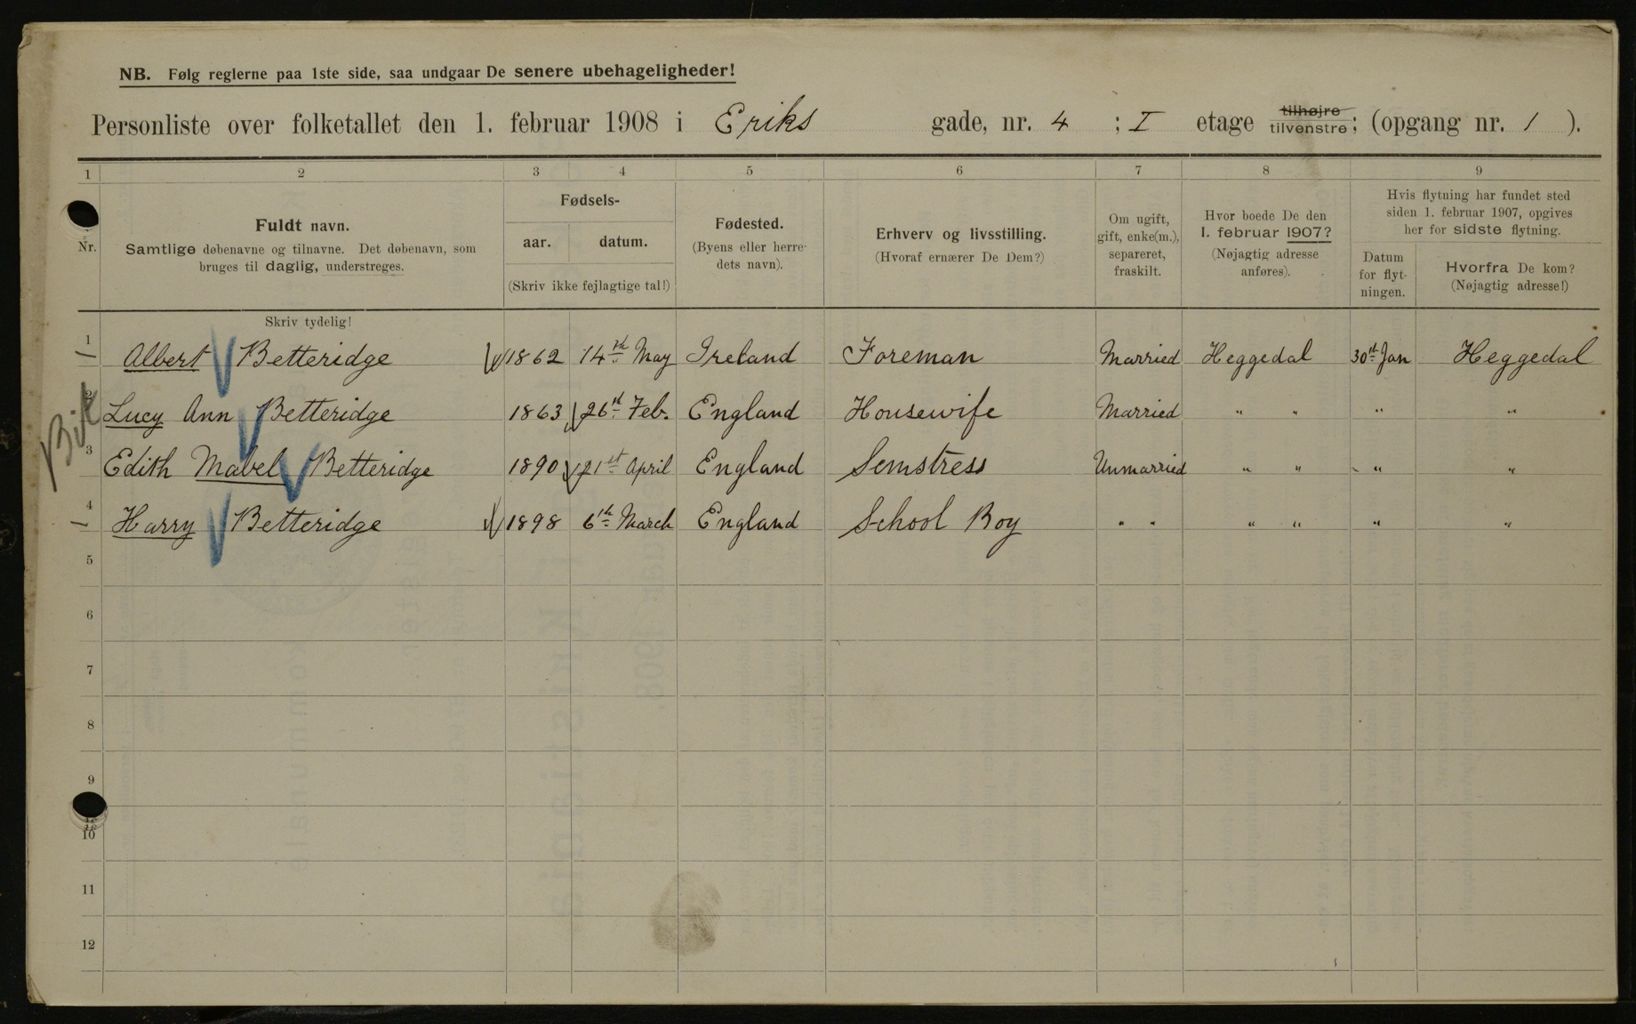 NB. Følg reglerne paa 1ste side, saa undgaar De senere ubehageligheder!
Personliste over folketallet den 1. februar 1908 i Eriks gade, nr. 4 ; I etage tilhøjre tilvenstre; (opgang nr. 1 ).
1 2 3 4 5 6 7 8 9
Nr.
Fuldt navn.
Samtlige døbenavne og tilnavne. Det døbenavn, som
bruges til daglig, understreges.
Fødsels-
aar. datum.
(Skriv ikke fejlagtige tal!)
Fødested.
(Byens eller herre-
dets navn).
Erhverv og livsstilling.
(Hvoraf ernærer De Dem?)
Om ugift,
gift, enke(m.),
separeret,
fraskilt.
Hvor boede De den
1. februar 1907?
(Nøjagtig adresse
anføres).
Hvis flytning har fundet sted
siden 1. februar 1907, opgives
her for sidste flytning.
Datum
for flyt-
ningen.
Hvorfra De kom?
(Nøjagtig adresse!)
Skriv tydelig!
1 Albert Betteridge 1862 14th May Ireland Foreman Married Heggedal 30th Jan Heggedal
2 Lucy Ann Betteridge 1863 26th Feb. England Housewife Married " " " "
3 Edith Mabel Betteridge 1890 21st April England Semstress Unmarried " " " "
4 Harry Betteridge 1898 6th March England School Boy " " " " " "
5
6
7
8
9
10
11
12